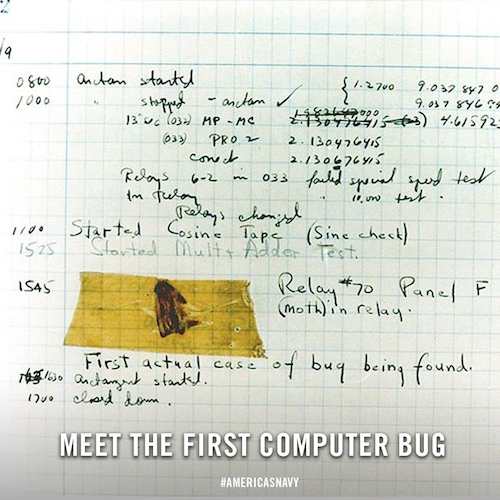 9
0800 antan started
1000 " stopped - antan ✓
{ 1.2700 9.037 847 0
9.037 846 9
13"uc (032) MP - MC 2.130476415 4.61592
(033) PRO 2 2.130476415
conect 2.130676415
Relays 6-2 in 033 failed special speed test
In Relay " 10.000 test.
Relays changed
1100 Started Cosine Tape (Sine check)
1525 Started Mult + Adder Test.
1545 Relay #70 Panel F
(moth) in relay.
First actual case of bug being found.
1630 antangent started.
1700 closed down.
MEET THE FIRST COMPUTER BUG
#AMERICASNAVY